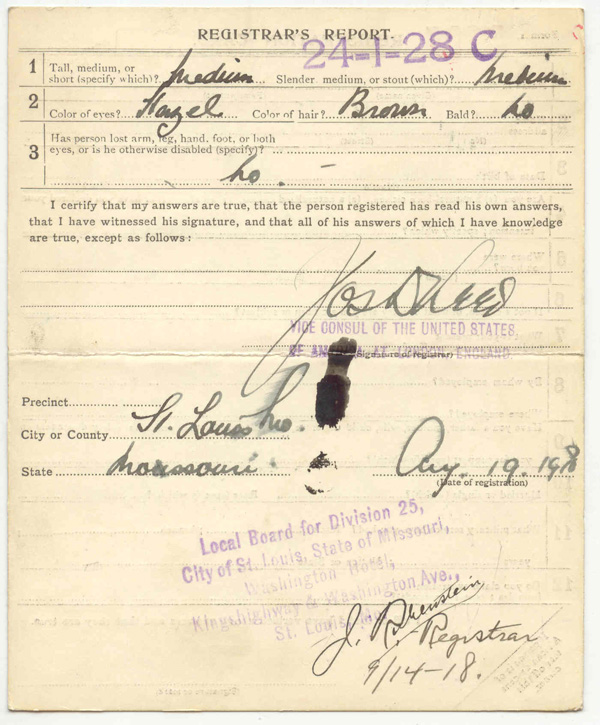 REGISTRAR'S REPORT.
24-1-28 C
1 Tall, medium, or short (specify which)? Medium Slender, medium, or stout (which)? Medium
2 Color of eyes? Hazel Color of hair? Brown Bald? no
3 Has person lost arm, leg, hand, foot, or both
eyes, or is he otherwise disabled (specify)?
no. —
I certify that my answers are true, that the person registered has read his own answers,
that I have witnessed his signature, and that all of his answers of which I have knowledge
are true, except as follows:
VICE CONSUL OF THE UNITED STATES,
OF AMERICA AT LONDON, ENGLAND
(Signature of registrar)
Precinct
City or County St. Louis Mo.
State Moussouri
Aug. 19. 1918
(Date of registration)
Local Board for Division 25,
City of St. Louis, State of Missouri,
Washington Hotel,
Kingshighway & Washington Ave.,
St. Louis, Mo.
Registrar
9/14-18.